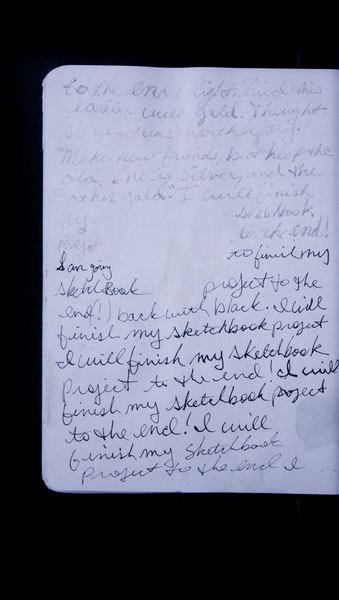 to the end! light. Tried this
earlier with gold. Thought
silver was worth a try.
"Make new friends, but keep the
old, one is silver, and the
other gold." I will finish
my sketchbook
project to the end!
I am going to finish my
sketchbook project to the
end!) back with black. I will
finish my sketchbook project
I will finish my sketchbook
project to the end! I will
finish my sketchbook project
to the end! I will
finish my sketchbook
project to the end I